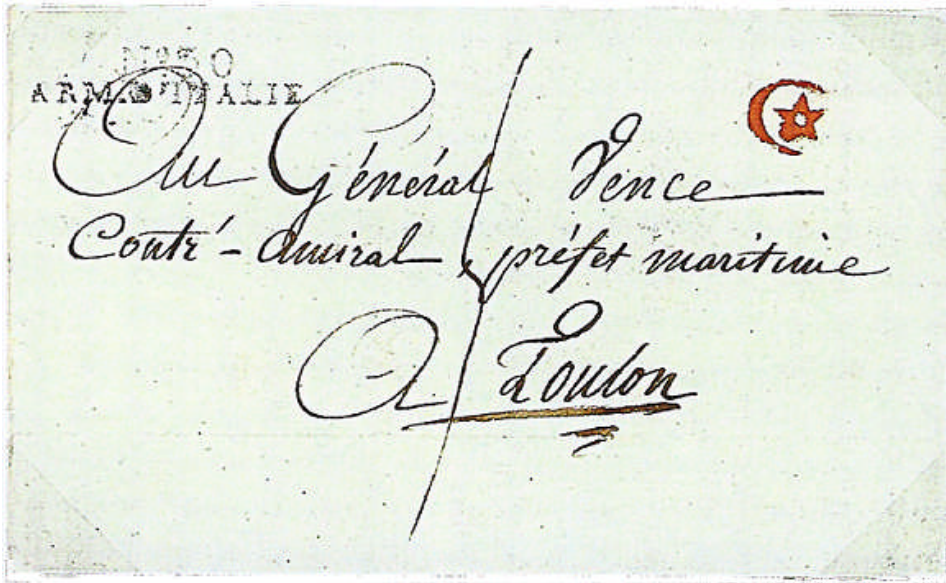 Nº 30
ARM. D'ITALIE
Au Général Vence
Contr'-Amiral, préfet maritime
A Toulon